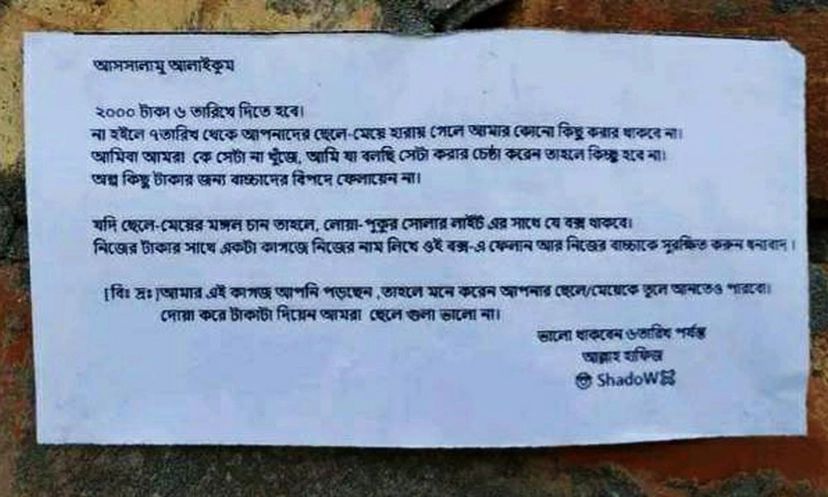 আসসালামু আলাইকুম
২০০০ টাকা ৬ তারিখে দিতে হবে।
না হইলে ৭তারিখ থেকে আপনাদের ছেলে-মেয়ে হারায় গেলে আমার কোনো কিছু করার থাকবে না।
আমিবা আমরা কে সেটা না খুঁজে, আমি যা বলছি সেটা করার চেষ্ঠা করেন তাহলে কিচ্ছু হবে না।
অল্প কিছু টাকার জন্য বাচ্চাদের বিপদে ফেলায়েন না।
যদি ছেলে-মেয়ের মঙ্গল চান তাহলে, লোয়া-পুকুর সোলার লাইট এর সাথে যে বক্স থাকবে।
নিজের টাকার সাথে একটা কাগজে নিজের নাম লিখে ওই বক্স-এ ফেলান আর নিজের বাচ্চাকে সুরক্ষিত করুন ধন্যবাদ।
[বিঃ দ্রঃ]আমার এই কাগজ আপনি পড়ছেন ,তাহলে মনে করেন আপনার ছেলে/মেয়েকে তুলে আনতেও পারবো।
দোয়া করে টাকাটা দিয়েন আমরা ছেলে গুলা ভালো না।
ভালো থাকবেন ৬তারিখ পর্যন্ত
আল্লাহ হাফিজ
ShadoW